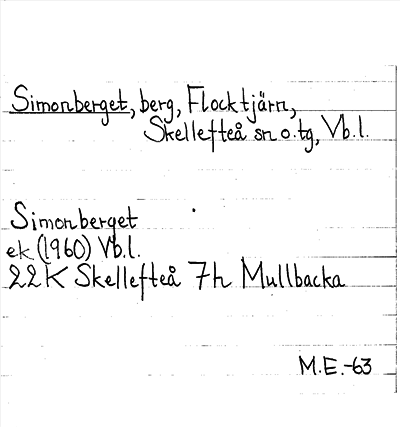 Simonberget, berg, Flocktjärn,
Skellefteå sn o. tg, Vb.l.
Simonberget
ek (1960) Vb.l.
22K Skellefteå 7h Mullbacka
M.E.-63